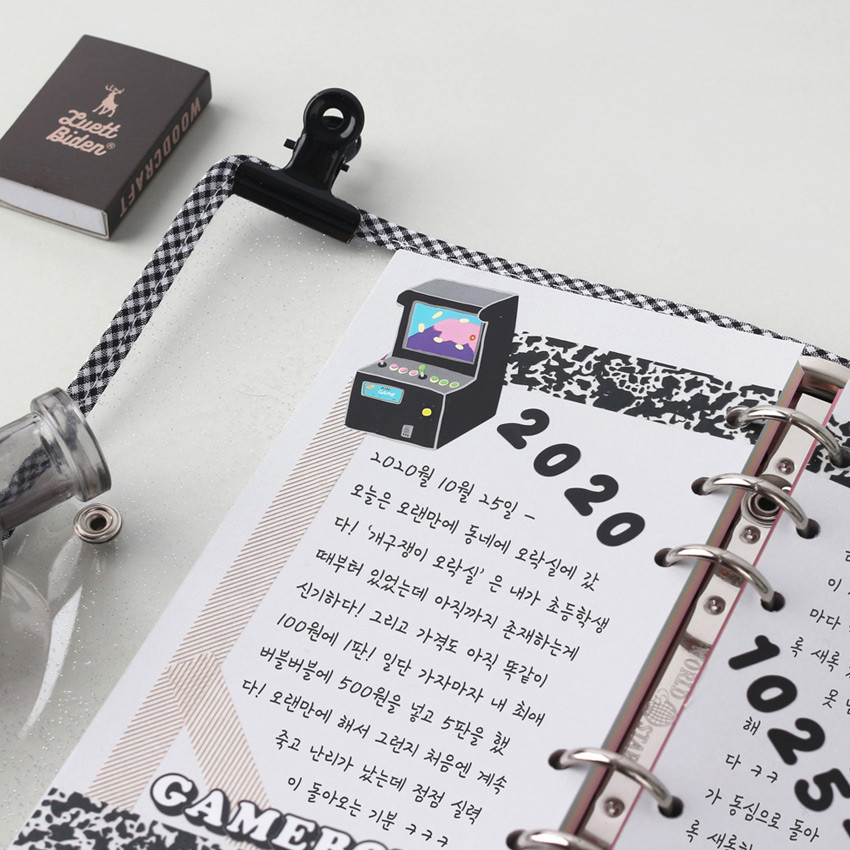 Luett
Biden®
WOODCRAFT
2020
2020월 10월 25일 -
오늘은 오랜만에 동네에 오락실에 갔
다! '개구쟁이 오락실' 은 내가 초등학생
때부터 있었는데 아직까지 존재하는게
신기하다! 그리고 가격도 아직 똑같이
100원에 1판! 일단 가자마자 내 최애
버블버블에 500원을 넣고 5판을 했
다! 오랜만에 해서 그런지 처음엔 계속
죽고 난리가 났는데 점점 실력
이 돌아오는 기분 ㅋㅋㅋ
WORLD
STAR
1025
이
마다
록 새로
못
해
다 ㅋㅋ
가 동심으로 돌아